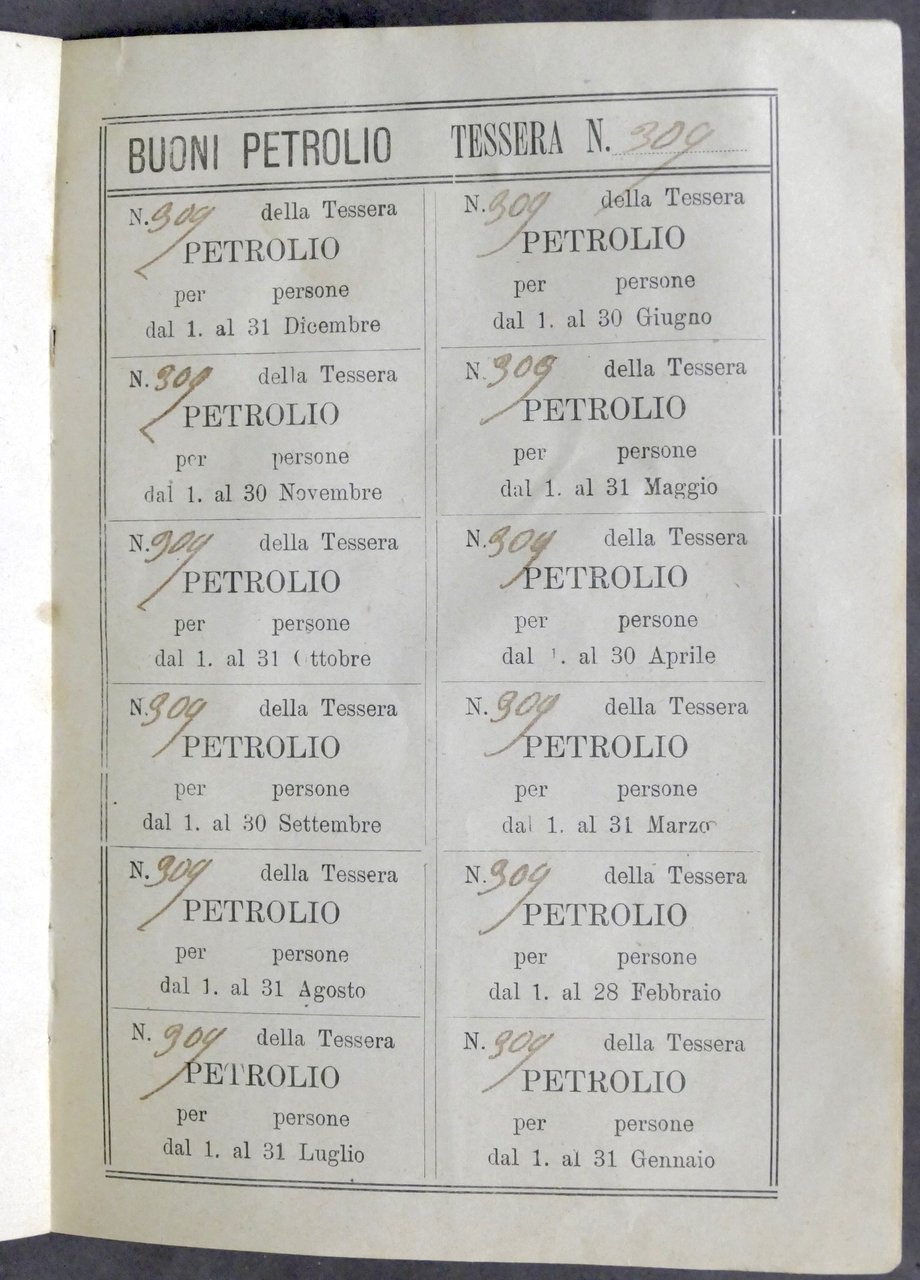 BUONI PETROLIO TESSERA N. 309
N. 309 della Tessera
PETROLIO
per persone
dal 1. al 31 Dicembre
N. 309 della Tessera
PETROLIO
per persone
dal 1. al 30 Novembre
N. 309 della Tessera
PETROLIO
per persone
dal 1. al 31 Ottobre
N. 309 della Tessera
PETROLIO
per persone
dal 1. al 30 Settembre
N. 309 della Tessera
PETROLIO
per persone
dal 1. al 31 Agosto
N. 309 della Tessera
PETROLIO
per persone
dal 1. al 31 Luglio
N. 309 della Tessera
PETROLIO
per persone
dal 1. al 30 Giugno
N. 309 della Tessera
PETROLIO
per persone
dal 1. al 31 Maggio
N. 309 della Tessera
PETROLIO
per persone
dal 1. al 30 Aprile
N. 309 della Tessera
PETROLIO
per persone
dal 1. al 31 Marzo
N. 309 della Tessera
PETROLIO
per persone
dal 1. al 28 Febbraio
N. 309 della Tessera
PETROLIO
per persone
dal 1. al 31 Gennaio